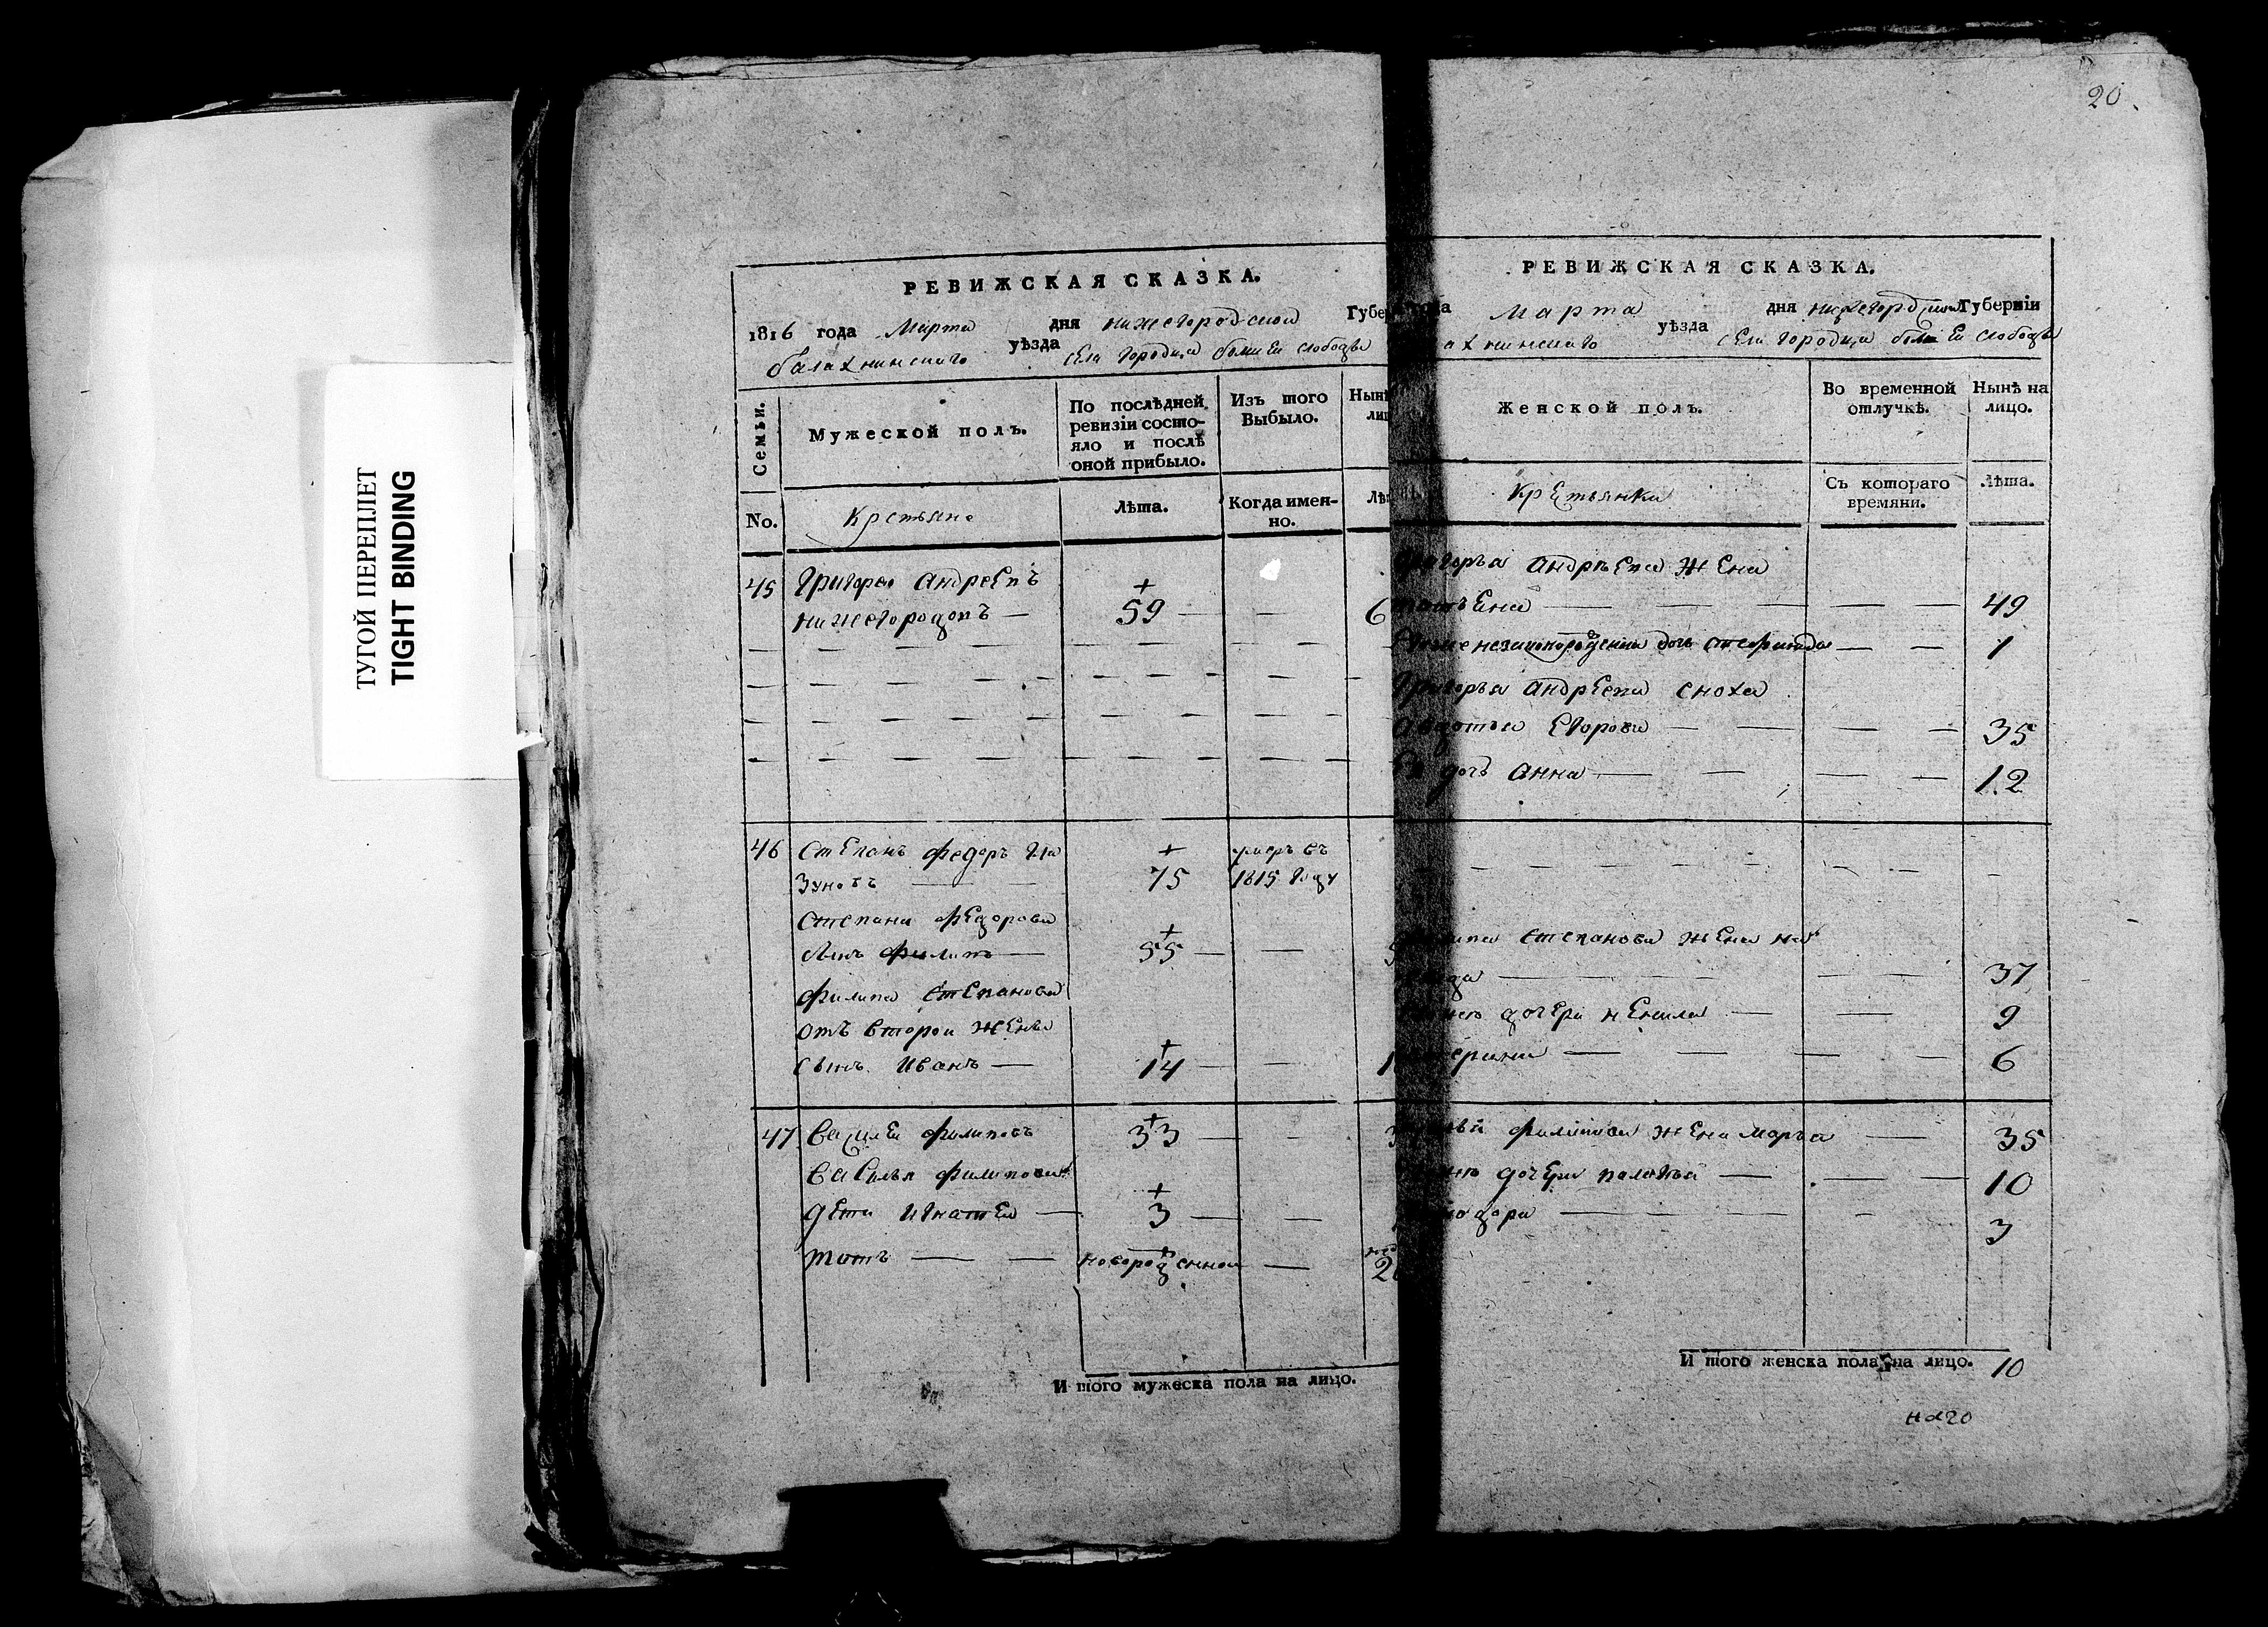 ТУГОЙ ПЕРЕПЛЕТ
TIGHT BINDING
РЕВИЖСКАЯ СКАЗКА.
1816 года Марта дня нижегородской Губер
балахнинского уѣзда села городца болшей слободы
Семьи.
Мужеской полъ.
По послѣдней ревизіи состо-
яло и послѣ
оной прибыло.
Изъ того
Выбыло.
Нынѣ
лиц
No.
Крстьяне
Лѣта.
Когда имен-
но.
Лѣ
45 Григореи андреевъ
нижегородовъ 59 6
46 Степанъ федоръ
75 умеръ въ
1815 году
Степана федорова
сынъ филипъ 55 5
филипа Степанова
отъ второй жены
сынъ Иванъ 14 1
47 Василеи филиповъ 33 3
Васильа филипова
дети игнатеи 3
новорожденной 2
И того мужеска пола на лицо.
20.
РЕВИЖСКАЯ СКАЗКА.
года Марта дня нижегородской Губерніи
ахнинского уѣзда села городца болшей слободы
Женской полъ.
Во временной
отлучкѣ.
Нынѣ на
лицо.
Крстьянки
Съ котораго
времяни.
Лѣта.
андрѣева жена
49
незаконорожденна дочь 1
андреева сноха
Егорова 35
дочь анна 12
Степанова жена на
37
дочери ненила 9
6
филипова жена марѳа 35
дочери палагѣя 10
3
И того женска пола на лицо. 10